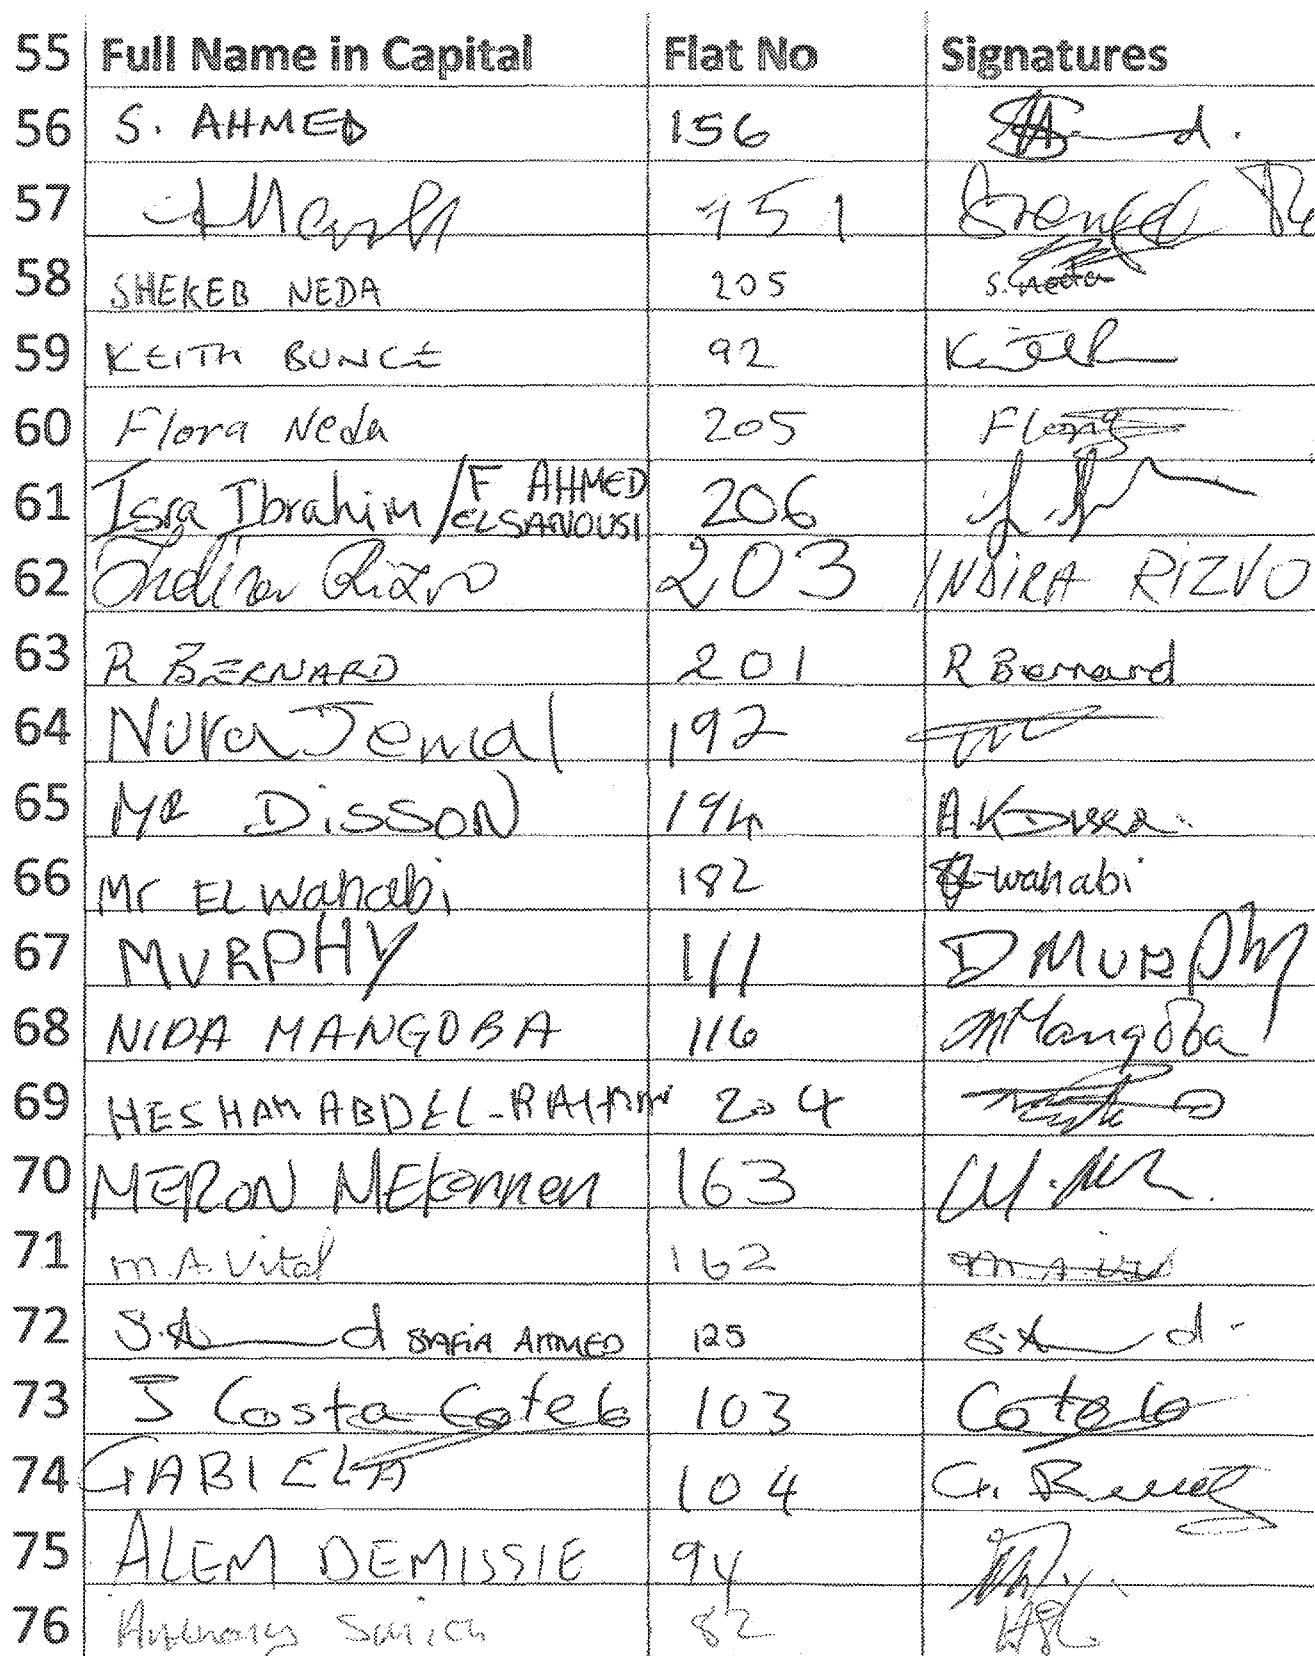 55 Full Name in Capital Flat No Signatures
56 S. AHMED 156
57 151
58 SHEKEB NEDA 205 S. Neda
59 KEITH BUNCE 92
60 Flora Neda 205 Flora
61 Isra Ibrahim / F AHMED ELSANOUSI 206
62 Indira Rizvo 203 INDIRA RIZVO
63 R BERNARD 201 R Bernard
64 Nura Jemal 192
65 MR DISSON 194
66 Mr EL Wahabi 182 El-wahabi
67 MURPHY 111 D MURPhy
68 NIDA MANGOBA 116 Mangoba
69 HESHAM ABDEL-RAHMAN 204
70 MERON MEKonnen 163
71 m.A.Vital 162
72 S.A d SAFIA AHMED 125 S.A d
73 J Costa Cotelo 103 Cotelo
74 GABIELA 104
75 ALEM DEMISSIE 94
76 Anthony Smith 82